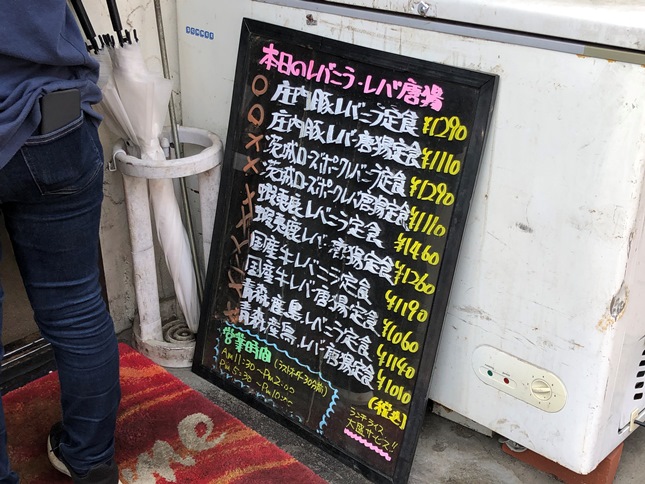 本日のレバニラ・レバ唐揚
○ 庄内豚レバニラ定食 ¥1290
○ 庄内豚レバー唐揚定食 ¥1110
× 茨城ローズポークレバニラ定食 ¥1290
× 茨城ローズポークレバ唐揚定食 ¥1110
× 蝦夷鹿レバニラ定食 ¥1460
× 蝦夷鹿レバー唐揚定食 ¥1260
国産牛レバニラ定食 ¥1190
国産牛レバー唐揚定食 ¥1060
青森産鳥レバニラ定食 ¥1140
青森産鳥レバー唐揚定食 ¥1010
(税込)
営業時間 (ラストオーダー30分前)
AM 11:30~PM 2:00
PM 5:30~PM 10:00
ランチライス
大盛サービス!!